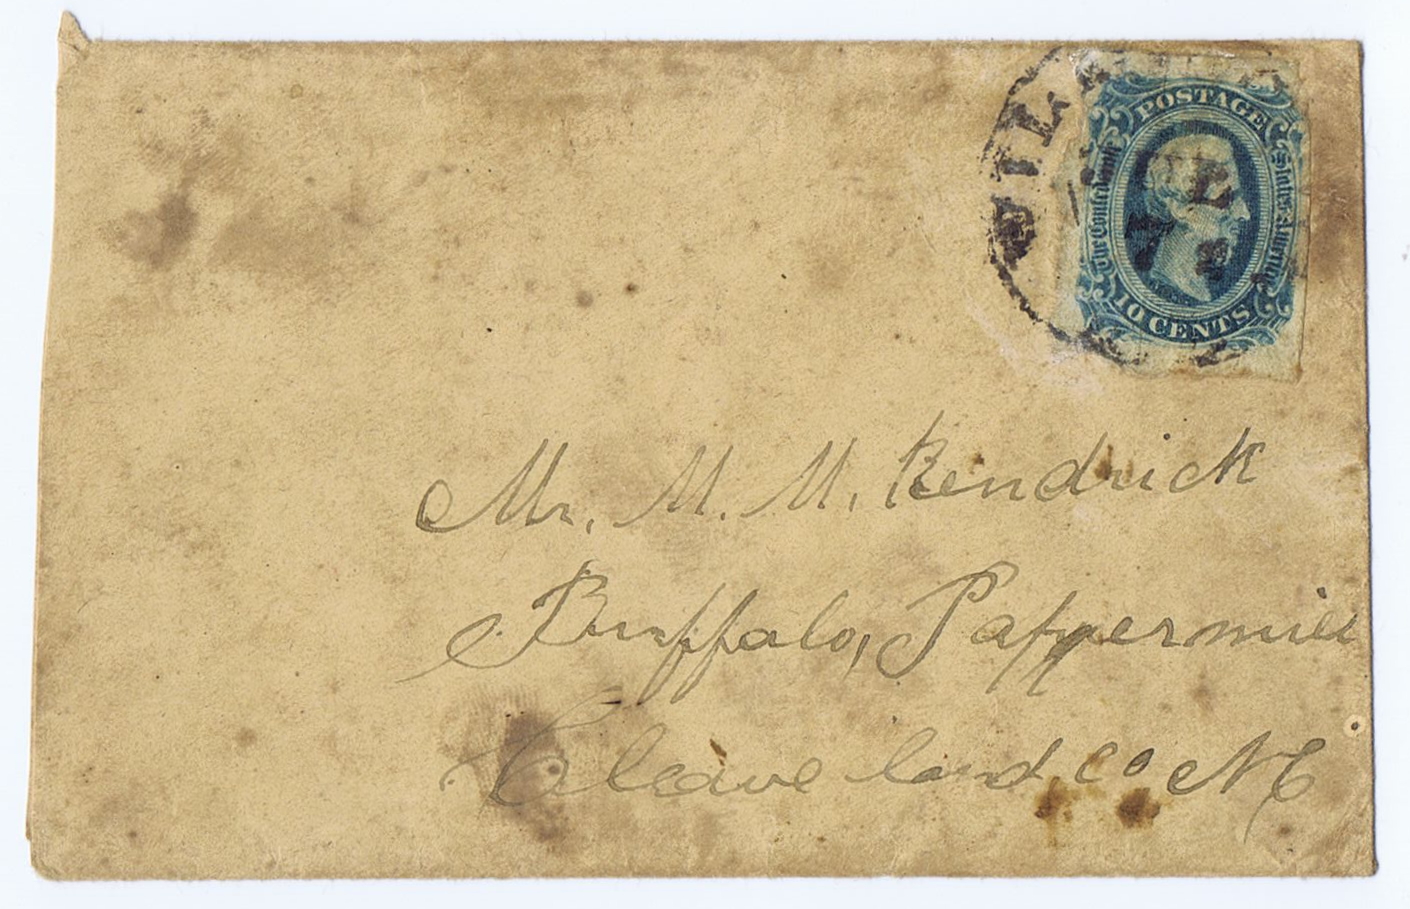 POSTAGE
The Confederate States of America
10 CENTS
Mr. M. M. Kendrick
Buffalo, Pappermill
Cleaveland Co NC